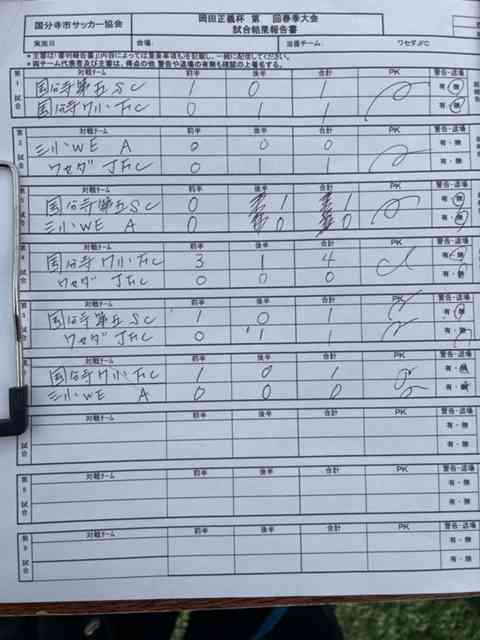 国分寺市サッカー協会
岡田正義杯 第 回春季大会
試合結果報告書
実施日 会場: 当番チーム: ワセダJFC
*主審は「審判報告書」内容によっては重要事項も)を記載し、一緒に配信してください。
*両チーム代表者及び主審は、得点の他 警告や退場の有無も確認の上署名する。
第1試合 対戦チーム 前半 後半 合計 PK 警告・退場
国分寺第五SC 1 0 1 有・無
国分寺ワ小FC 0 1 1 有・無
第2試合 対戦チーム 前半 後半 合計 PK 警告・退場
三小WE A 0 0 0 有・無
ワセダ JFC 0 1 1 有・無
試合 対戦チーム 前半 後半 合計 PK 警告・退場
国分寺第五SC 0 1 1 有・無
三小WE A 0 0 0 有・無
試合 対戦チーム 前半 後半 合計 PK 警告・退場
国分寺ワ小FC 3 1 4 有・無
ワセダ JFC 0 0 0 有・無
試合 対戦チーム 前半 後半 合計 PK 警告・退場
国分寺第五SC 1 0 1 有・無
ワセダ JFC 0 1 1 有・無
試合 対戦チーム 前半 後半 合計 PK 警告・退場
国分寺ワ小FC 1 0 1 有・無
三小WE A 0 0 0 有・無
試合 対戦チーム 前半 後半 合計 PK 警告・退場
有・無
有・無
第8試合 対戦チーム 前半 後半 合計 PK 警告・退場
有・無
有・無
第9試合 対戦チーム 前半 後半 合計 PK 警告・退場
有・無
有・無